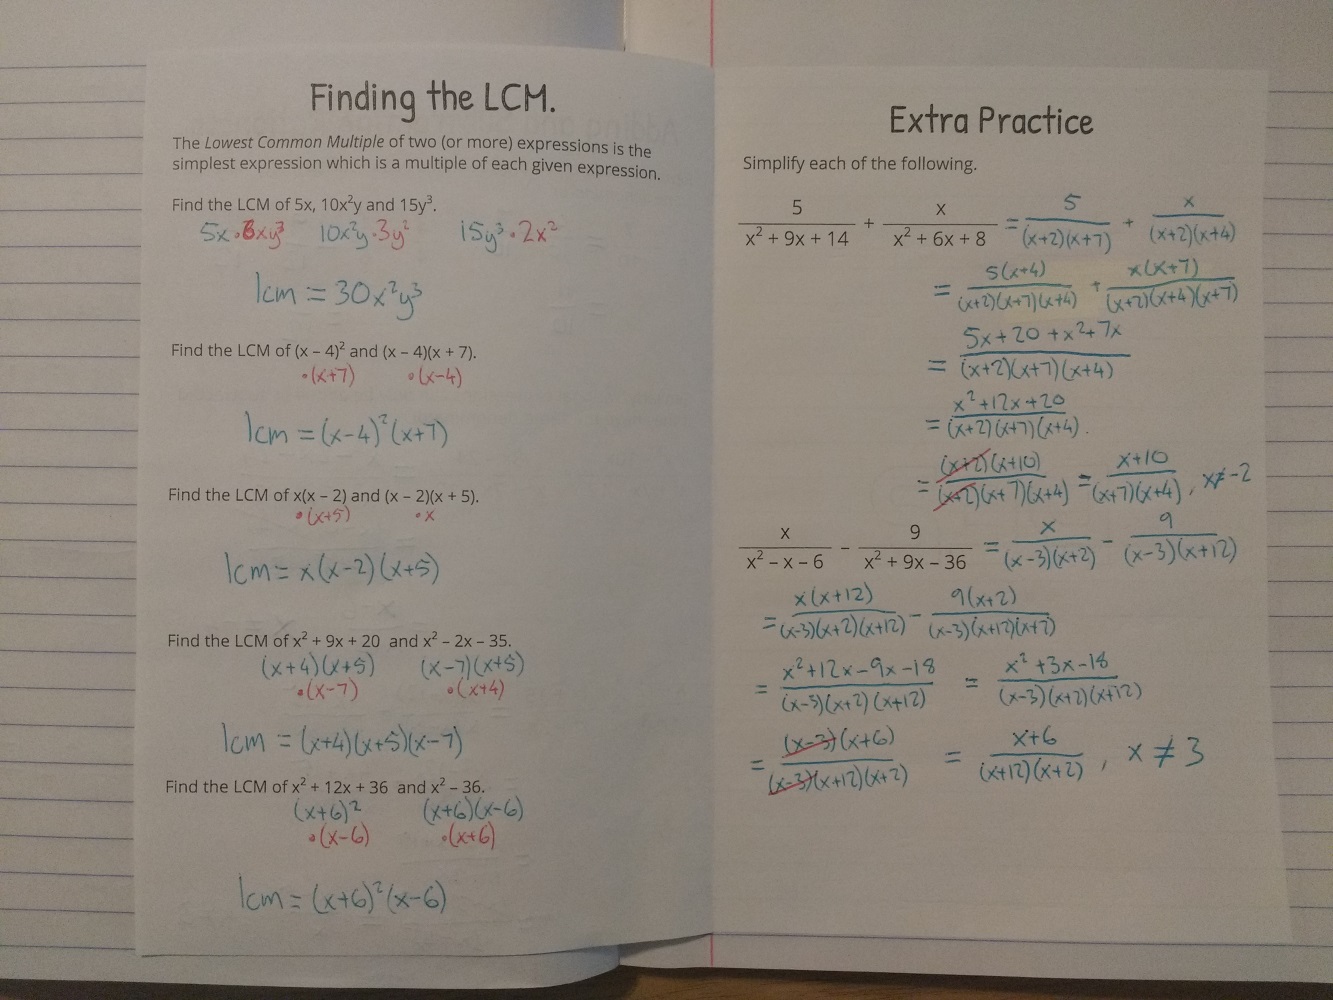 Finding the LCM.
The Lowest Common Multiple of two (or more) expressions is the
simplest expression which is a multiple of each given expression.
Find the LCM of 5x, 10x²y and 15y³.
5x·6xy³ 10x²y·3y² 15y³·2x²
lcm = 30x²y³
Find the LCM of (x – 4)² and (x – 4)(x + 7).
·(x+7) ·(x-4)
lcm = (x-4)²(x+7)
Find the LCM of x(x – 2) and (x – 2)(x + 5).
·(x+5) ·x
lcm = x(x-2)(x+5)
Find the LCM of x² + 9x + 20 and x² – 2x – 35.
(x+4)(x+5) (x-7)(x+5)
·(x-7) ·(x+4)
lcm = (x+4)(x+5)(x-7)
Find the LCM of x² + 12x + 36 and x² – 36.
(x+6)² (x+6)(x-6)
·(x-6) ·(x+6)
lcm = (x+6)²(x-6)
Extra Practice
Simplify each of the following.
5/(x² + 9x + 14) + x/(x² + 6x + 8) = 5/((x+2)(x+7)) + x/((x+2)(x+4))
= 5(x+4)/((x+2)(x+7)(x+4)) + x(x+7)/((x+2)(x+4)(x+7))
= (5x+20+x²+7x)/((x+2)(x+7)(x+4))
= (x²+12x+20)/((x+2)(x+7)(x+4)).
= (x+2)(x+10)/((x+2)(x+7)(x+4)) = (x+10)/((x+7)(x+4)), x≠-2
x/(x² – x – 6) - 9/(x² + 9x – 36) = x/((x-3)(x+2)) - 9/((x-3)(x+12))
= x(x+12)/((x-3)(x+2)(x+12)) - 9(x+2)/((x-3)(x+12)(x+2))
= (x²+12x-9x-18)/((x-3)(x+2)(x+12)) = (x²+3x-18)/((x-3)(x+2)(x+12))
= (x-3)(x+6)/((x-3)(x+12)(x+2)) = (x+6)/((x+12)(x+2)), x ≠ 3